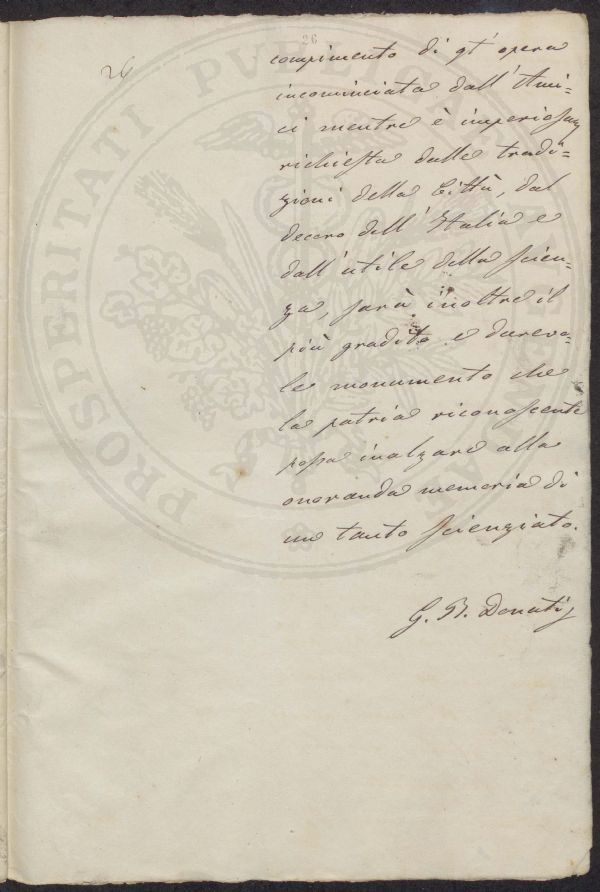 26
26
compimento di qt' opera
incominciata dall' Ami-
ci mentre è imperiosam
richiesta dalle tradi=
zioni della Città, dal
decoro dell' Italia e
dall' utile della scien-
za, sarà inoltre il
più gradito e durevo-
le monumento che
la patria riconoscente
possa inalzare alla
onoranda memoria di
un tanto scienziato.
G. B. Donati
PROSPERITATI PVBLICAE AVGENDAE